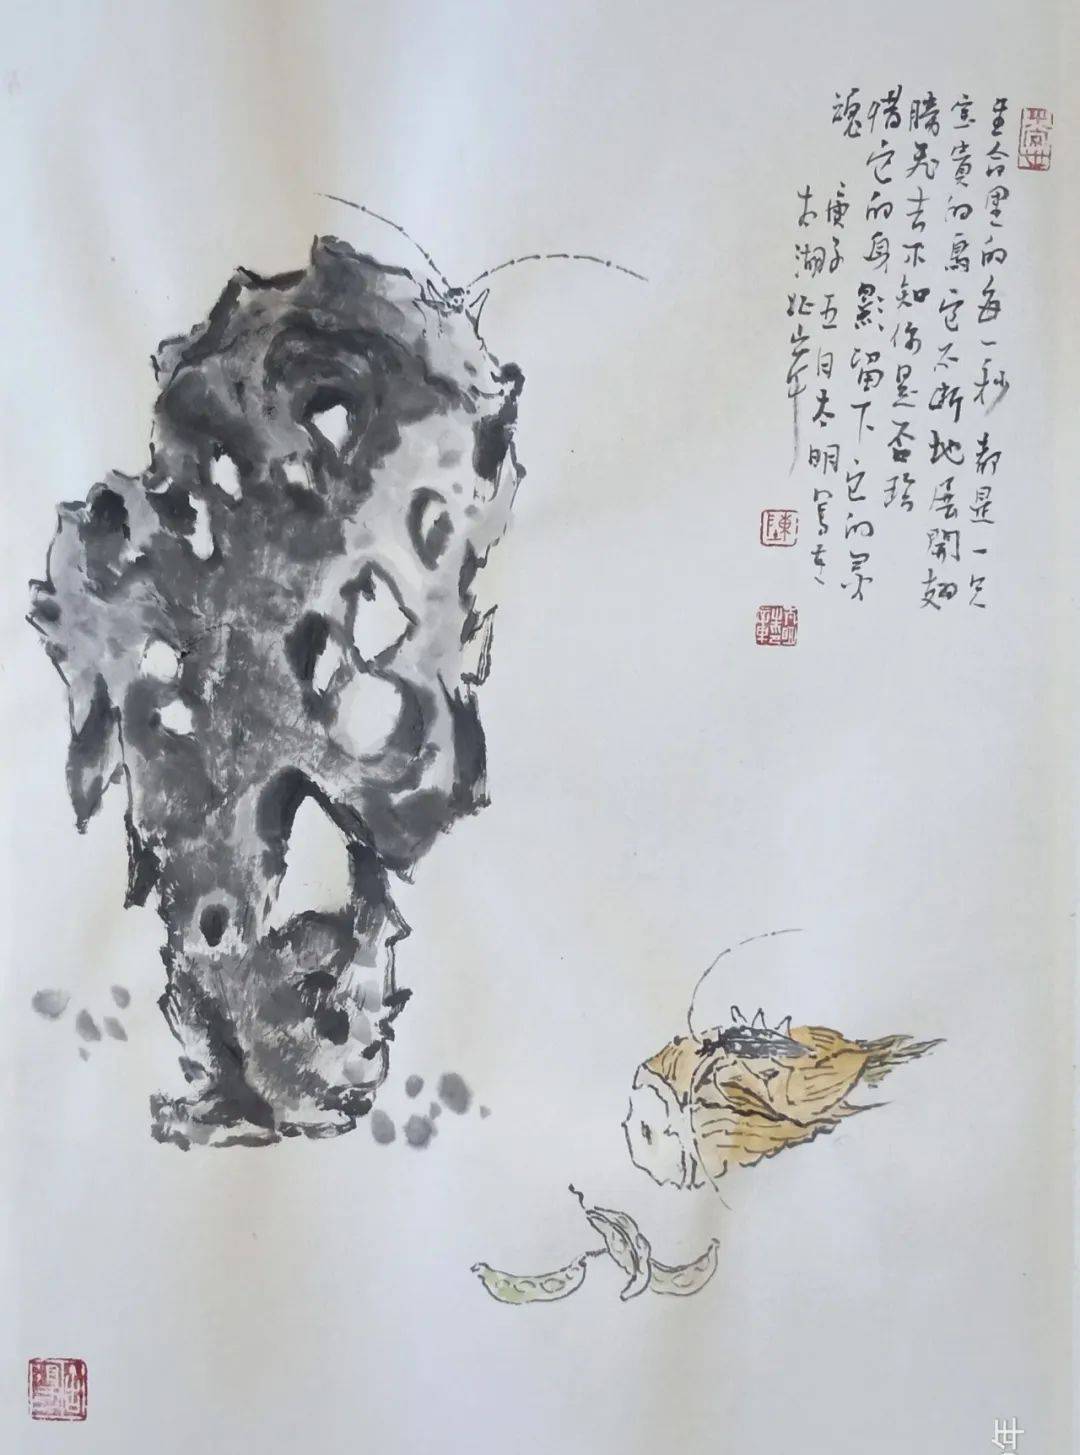 生命里的每一秒都是一只
宝贵的鸟它不断地展開翅
膀飛去不知你是否珍
惜它的身影留下它的灵
魂
庚子五月大明寫於
太湖北岸
陳